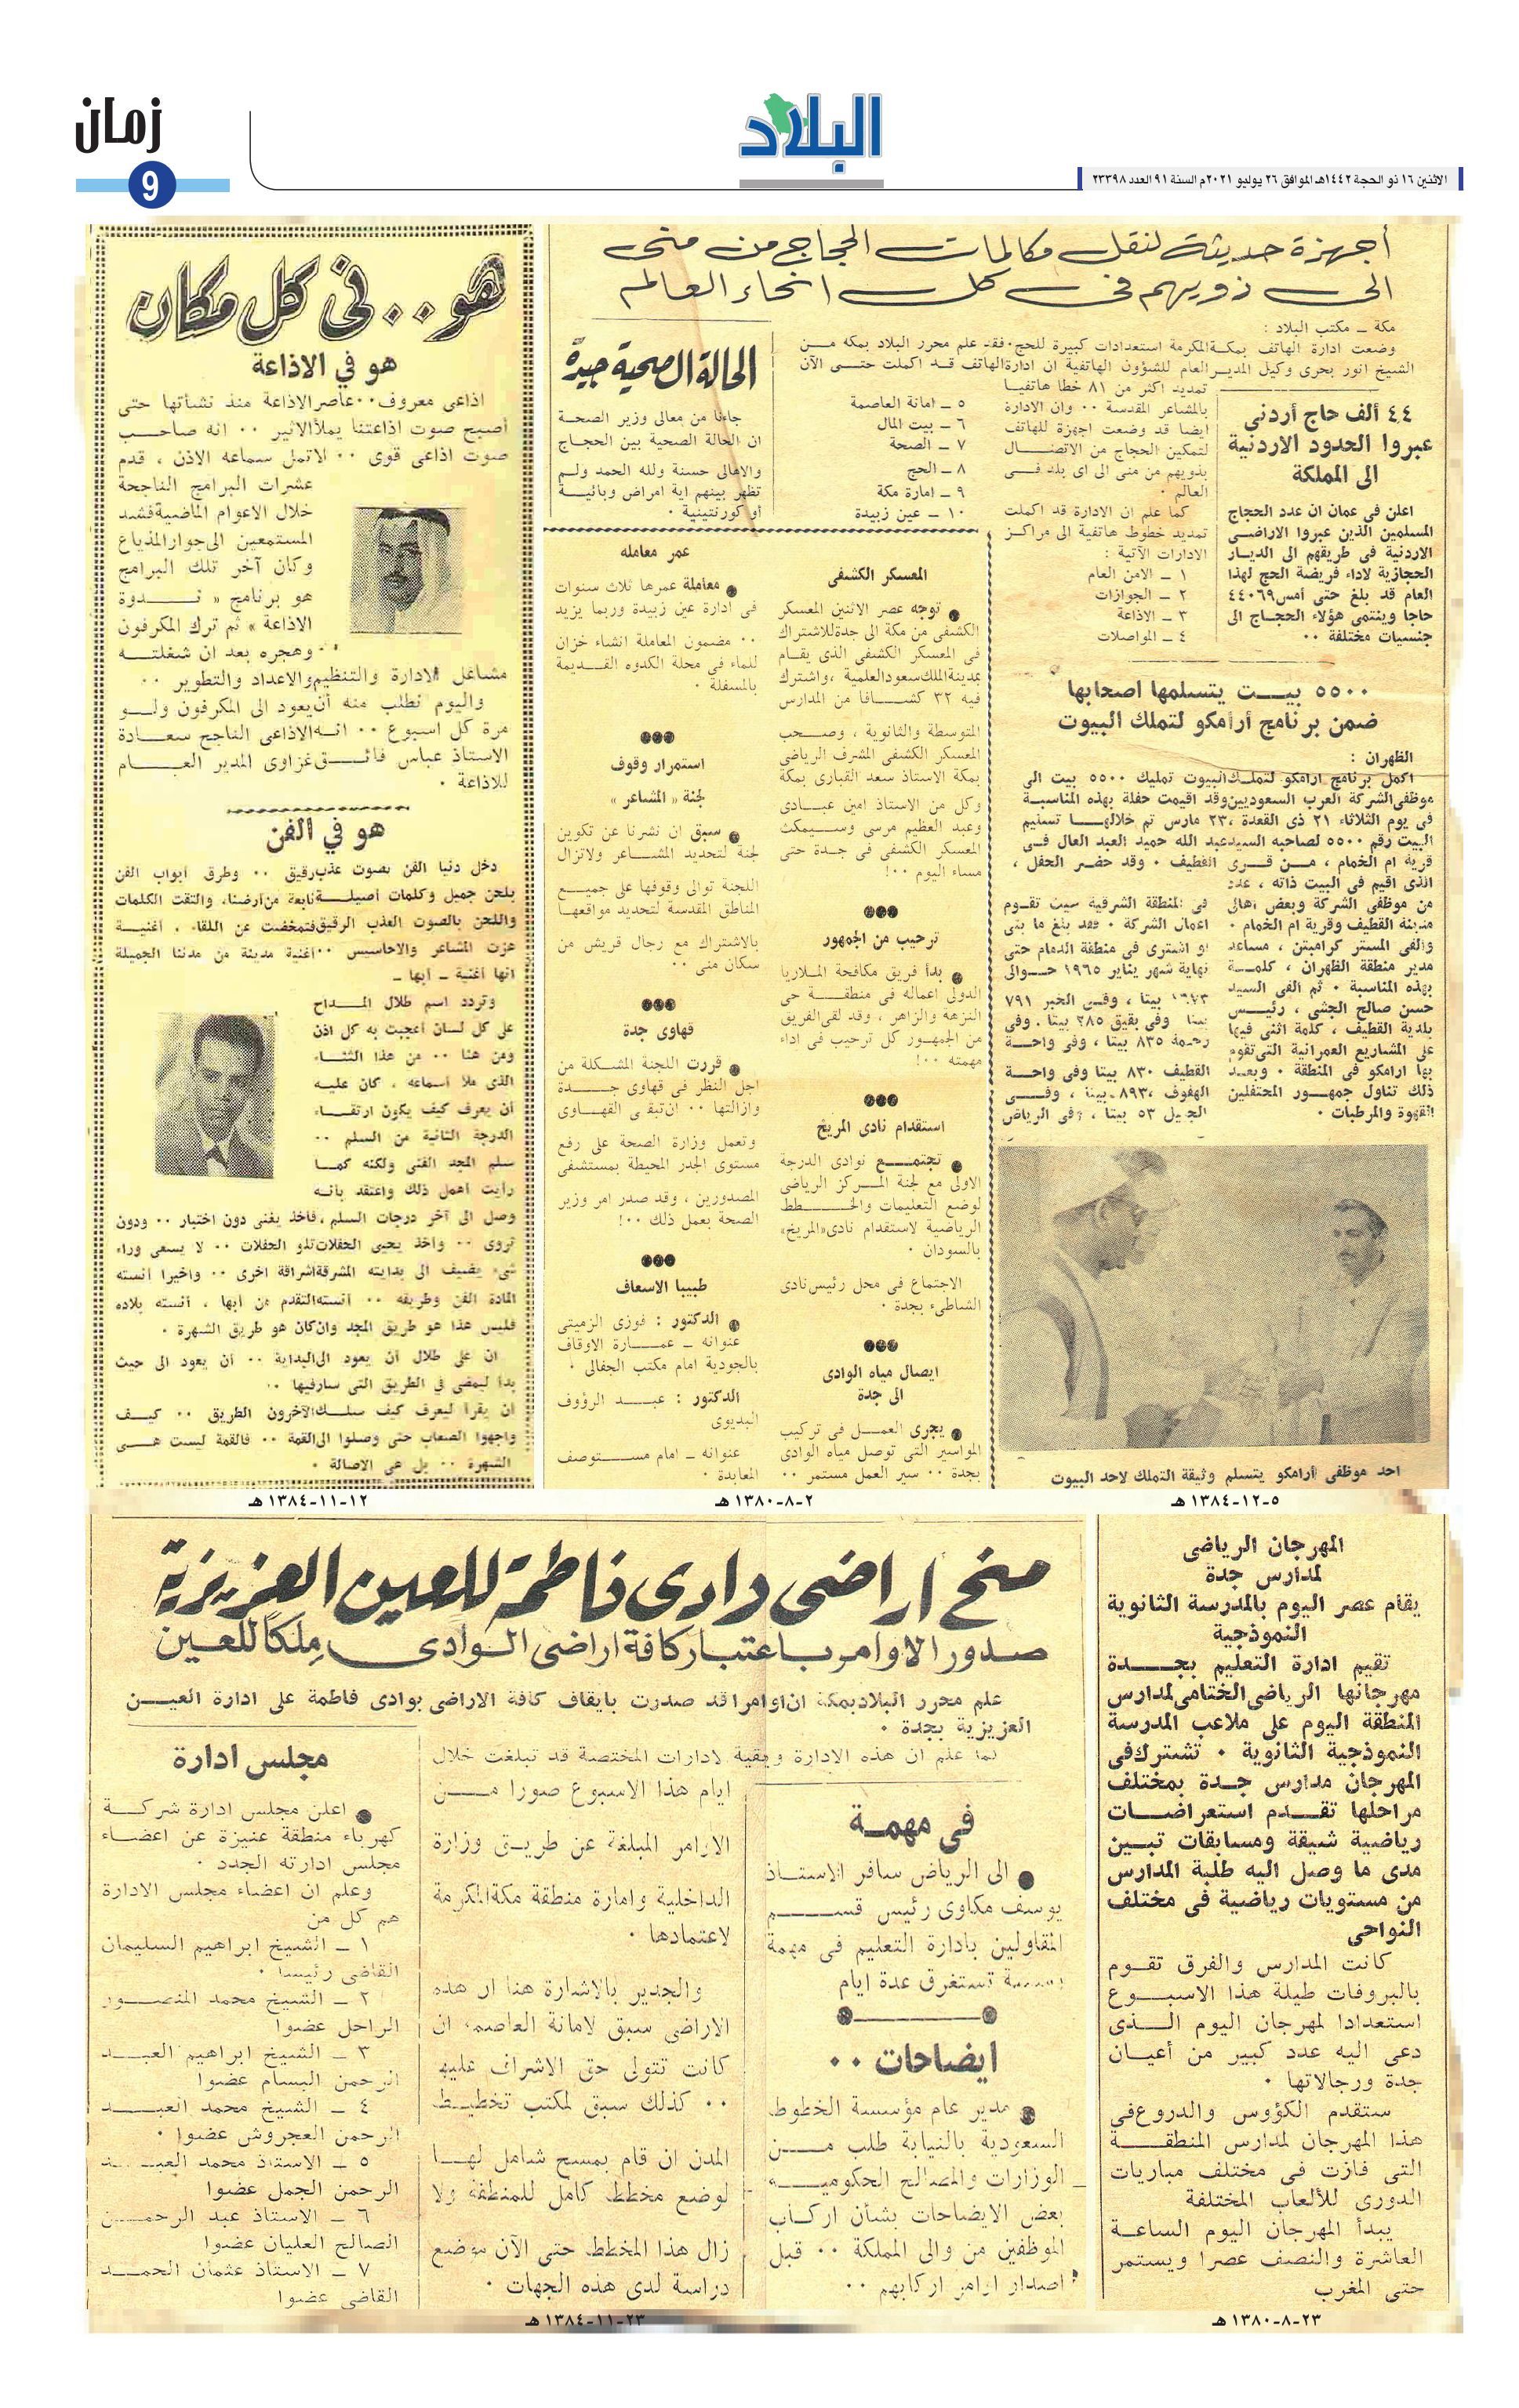 زمان
9
البلاد
الاثنين ١٦ ذو الحجة ١٤٤٢هـ الموافق ٢٦ يوليو ٢٠٢١م السنة ٩١ العدد ٢٣٣٩٨
أجهزة حديثة لنقل مكالمات الحجاج من منى
الى ذويهم فى كل انحاء العالم
مكة ــ مكتب البلاد :
وضعت ادارة الهاتف بمكة المكرمة استعدادات كبيرة للحج . فقد علم محرر البلاد بمكه من
الشيخ انور بحرى وكيل المدير العام للشؤون الهاتفية ان ادارة الهاتف قد اكملت حتى الآن
تمديد اكثر من ٨١ خطا هاتفيا
بالمشاعر المقدسة ٠٠ وان الادارة
ايضا قد وضعت اجهزة للهاتف
لتمكين الحجاج من الاتصال
بذويهم من منى الى اى بلد فى
العالم ٠
كما علم ان الادارة قد اكملت
تمديد خطوط هاتفية الى مراكز
الادارات الآتية :
١ ــ الامن العام
٢ ــ الجوازات
٣ ــ الاذاعة
٤ ــ المواصلات
٥ ــ امانة العاصمة
٦ ــ بيت المال
٧ ــ الصحة
٨ ــ الحج
٩ ــ امارة مكة
١٠ ــ عين زبيدة
٤٤ ألف حاج أردنى
عبروا الحدود الاردنية
الى المملكة
اعلن فى عمان ان عدد الحجاج
المسلمين الذين عبروا الاراضى
الاردنية فى طريقهم الى الديار
الحجازية لاداء فريضة الحج لهذا
العام قد بلغ حتى أمس ٤٤٠٦٩
حاجا وينتمى هؤلاء الحجاج الى
جنسيات مختلفة ٠٠
الحالة الصحية جيدة
جاءنا من معالى وزير الصحة
ان الحالة الصحية بين الحجاج
والاهالى حسنة ولله الحمد ولم
تظهر بينهم اية امراض وبائية
أو كورنتينية ٠
٥٥٠٠ بيت يتسلمها اصحابها
ضمن برنامج أرامكو لتملك البيوت
الظهران :
اكمل برنامج ارامكو لتملك البيوت تمليك ٥٥٠٠ بيت الى
موظفى الشركة العرب السعوديين وقد اقيمت حفلة بهذه المناسبة
فى يوم الثلاثاء ٢١ ذى القعدة ، ٢٣ مارس تم خلالها تسليم
البيت رقم ٥٥٠٠ لصاحبه السيد عبد الله حميد العبد العال فى
قرية ام الخمام ، من قرى القطيف ٠ وقد حضر الحفل ،
الذى اقيم فى البيت ذاته ، عدد
من موظفى الشركة وبعض اهالى
مدينة القطيف وقرية ام الخمام ٠
والقى المستر كرامبتن ، مساعد
مدير منطقة الظهران ، كلمة
بهذه المناسبة ٠ ثم القى السيد
حسن صالح الجشى ، رئيس
بلدية القطيف ، كلمة اثنى فيها
على المشاريع العمرانية التى تقوم
بها ارامكو فى المنطقة ٠ وبعد
ذلك تناول جمهور المحتفلين
القهوة والمرطبات ٠
فى المنطقة الشرقية سيت تقوم
اعمال الشركة ٠ فقد بلغ ما بنى
او اشترى فى منطقة الدمام حتى
نهاية شهر يناير ١٩٦٥ حوالى
بيتا ، وفى الخبر ٧٩١
بيتا وفى بقيق ٢٨٥ بيتا ، وفى
رحيمة ٨٣٥ بيتا ، وفى واحة
القطيف ٨٣٠ بيتا وفى واحة
الهفوف ٨٩٣ بيتا ، وفى
الجبيل ٥٣ بيتا ، وفى الرياض
احد موظفى أرامكو يتسلم وثيقة التملك لاحد البيوت
٥-١٢-١٣٨٤ هـ
المعسكر الكشفى
● توجه عصر الاثنين المعسكر
الكشفى من مكة الى جدة للاشتراك
فى المعسكر الكشفى الذى يقام
بمدينة الملك سعود العلمية ، واشترك
فيه ٣٢ كشافا من المدارس
المتوسطة والثانوية ، وصحب
المعسكر الكشفى المشرف الرياضى
بمكة الاستاذ سعد القبارى بمكة
وكل من الاستاذ امين عبادى
وعبد العظيم مرسى وسيمكث
المعسكر الكشفى فى جدة حتى
مساء اليوم ٠٠!
ترحيب من الجمهور
● بدأ فريق مكافحة الملاريا
الدولى اعماله فى منطقة حى
النزهة والزاهر ، وقد لقى الفريق
من الجمهور كل ترحيب فى اداء
مهمته ٠٠!
استقدام نادى المريخ
● تجتمع نوادى الدرجة
الاولى مع لجنة المركز الرياضى
لوضع التعليمات والخطط
الرياضية لاستقدام نادى «المريخ»
بالسودان ٠
الاجتماع فى محل رئيس نادى
الشاطىء بجدة ٠
ايصال مياه الوادى
الى جدة
● يجرى العمل فى تركيب
المواسير التى توصل مياه الوادى
بجدة ٠٠ سير العمل مستمر ٠٠
عمر معاملة
● معاملة عمرها ثلاث سنوات
فى ادارة عين زبيدة وربما يزيد
٠٠ مضمون المعاملة انشاء خزان
للماء فى محلة الكدوه القديمة
بالمسفلة ٠
استمرار وقوف
لجنة « المشاعر »
● سبق ان نشرنا عن تكوين
لجنة لتحديد المشاعر ولاتزال
اللجنة توالى وقوفها على جميع
المناطق المقدسة لتحديد مواقعها
بالاشتراك مع رجال قريش من
سكان منى ٠٠
قهاوى جدة
● قررت اللجنة المشكلة من
اجل النظر فى قهاوى جدة
وازالتها ٠٠ ان تبقى القهاوى
وتعمل وزارة الصحة على رفع
مستوى الجدر المحيطة بمستشفى
المصدورين ، وقد صدر امر وزير
الصحة بعمل ذلك ٠٠!
طبيبا الاسعاف
● الدكتور : فوزى الزميتى
عنوانه ــ عمارة الاوقاف
بالجودية امام مكتب الجفالى ٠
الدكتور : عبد الرؤوف
البديوى
عنوانه ــ امام مستوصف
المعابدة ٠
٢-٨-١٣٨٠ هـ
هو.. فى كل مكان
هو في الاذاعة
اذاعى معروف ٠٠ عاصر الاذاعة منذ نشأتها حتى
أصبح صوت اذاعتنا يملأ الاثير ٠٠ انه صاحب
صوت اذاعى قوى ٠٠ لا تمل سماعه الاذن ، قدم
عشرات البرامج الناجحة
خلال الاعوام الماضية فشد
المستمعين الى جوار المذياع
وكان آخر تلك البرامج
هو برنامج « ندوة
الاذاعة » ثم ترك المكرفون
٠٠ وهجره بعد ان شغلته
مشاغل الادارة والتنظيم والاعداد والتطوير ٠٠
واليوم نطلب منه أن يعود الى المكرفون ولو
مرة كل اسبوع ٠٠ انه الاذاعى الناجح سعادة
الاستاذ عباس فائق غزاوى المدير العام
للاذاعة ٠
هو في الفن
دخل دنيا الفن بصوت عذب رقيق ٠٠ وطرق أبواب الفن
بلحن جميل وكلمات أصيلة نابعة من أرضنا، والتقت الكلمات
واللحن بالصوت العذب الرقيق فتمخضت عن اللقاء ، أغنية
هزت المشاعر والاحاسيس ٠٠ أغنية مدينة من مدننا الجميلة
انها أغنية ــ أبها ــ
وتردد اسم طلال المداح
على كل لسان أعجبت به كل اذن
ومن هنا ٠٠ من هذا الثناء
الذى ملأ أسماعه ، كان عليه
أن يعرف كيف يكون ارتقاء
الدرجة الثانية من السلم ٠٠
سلم المجد الفنى ولكنه كما
رأيت أهمل ذلك واعتقد بأنه
وصل الى آخر درجات السلم ، فأخذ يغنى دون اختيار ٠٠ ودون
تروى ٠٠ وأخذ يحيى الحفلات تلو الحفلات ٠٠ لا يسعى وراء
شىء يضيف الى بدايته المشرقة اشراقة اخرى ٠٠ وأخيرا أنسته
المادة الفن وطريقه ٠٠ أنسته التقدم من أبها ، أنسته بلاده
فليس هذا هو طريق المجد وان كان هو طريق الشهرة ٠
ان على طلال أن يعود الى البداية ٠٠ أن يعود الى حيث
بدأ ليمضى في الطريق التى سار فيها ٠٠
أن يقرأ ليعرف كيف سلك الآخرون الطريق ٠٠ كيف
واجهوا الصعاب حتى وصلوا الى القمة ٠٠ فالقمة ليست هى
الشهرة ٠٠ بل هى الاصالة ٠
١٢-١١-١٣٨٤ هـ
المهرجان الرياضى
لمدارس جدة
يقام عصر اليوم بالمدرسة الثانوية
النموذجية
تقيم ادارة التعليم بجدة
مهرجانها الرياضى الختامى لمدارس
المنطقة اليوم على ملاعب المدرسة
النموذجية الثانوية ٠ تشترك فى
المهرجان مدارس جدة بمختلف
مراحلها تقدم استعراضات
رياضية شيقة ومسابقات تبين
مدى ما وصل اليه طلبة المدارس
من مستويات رياضية فى مختلف
النواحى
كانت المدارس والفرق تقوم
بالبروفات طيلة هذا الاسبوع
استعدادا لمهرجان اليوم الذى
دعى اليه عدد كبير من أعيان
جدة ورجالاتها ٠
ستقدم الكؤوس والدروع فى
هذا المهرجان لمدارس المنطقة
التى فازت فى مختلف مباريات
الدورى للألعاب المختلفة
يبدأ المهرجان اليوم الساعة
العاشرة والنصف عصرا ويستمر
حتى المغرب
٢٣-٨-١٣٨٠ هـ
منح اراضى وادى فاطمة للعين العزيزية
صدور الاوامر باعتبار كافة اراضى الوادى ملكا للعين
علم محرر البلاد بمكة ان اوامرا قد صدرت بايقاف كافة الاراضى بوادى فاطمة على ادارة العين
العزيزية بجدة ٠
كما علم ان هذه الادارة وبقية لادارات المختصة قد تبلغت خلال
ايام هذا الاسبوع صورا من
الاوامر المبلغة عن طريق وزارة
الداخلية وامارة منطقة مكة المكرمة
لاعتمادها ٠
والجدير بالاشارة هنا ان هذه
الاراضى سبق لامانة العاصمة ان
كانت تتولى حق الاشراف عليها
٠٠ كذلك سبق لمكتب تخطيط
المدن ان قام بمسح شامل لها
لوضع مخطط كامل للمنطقة ولا
زال هذا المخطط حتى الآن موضع
دراسة لدى هذه الجهات ٠
فى مهمة
● الى الرياض سافر الاستاذ
يوسف مكاوى رئيس قسم
المقاولين بادارة التعليم فى مهمة
تستغرق عدة ايام
ايضاحات ٠٠
● مدير عام مؤسسة الخطوط
السعودية بالنيابة طلب من
الوزارات والمصالح الحكومية
بعض الايضاحات بشأن اركاب
الموظفين من والى المملكة ٠٠ قبل
اصدار اوامر اركابهم ٠٠
مجلس ادارة
● اعلن مجلس ادارة شركة
كهرباء منطقة عنيزة عن اعضاء
مجلس ادارته الجدد ٠
وعلم ان اعضاء مجلس الادارة
هم كل من
١ ــ الشيخ ابراهيم السليمان
القاضى رئيسا ٠
٢ ــ الشيخ محمد المنصور
الزاحل عضوا
٣ ــ الشيخ ابراهيم العبد
الرحمن البسام عضوا
٤ ــ الشيخ محمد العبد
الرحمن العجروش عضوا ٠
٥ ــ الاستاذ محمد العبد
الرحمن الجمل عضوا
٦ ــ الاستاذ عبد الرحمن
الصالح العليان عضوا
٧ ــ الاستاذ عثمان الحمد
القاضى عضوا
٢٣-١١-١٣٨٤ هـ